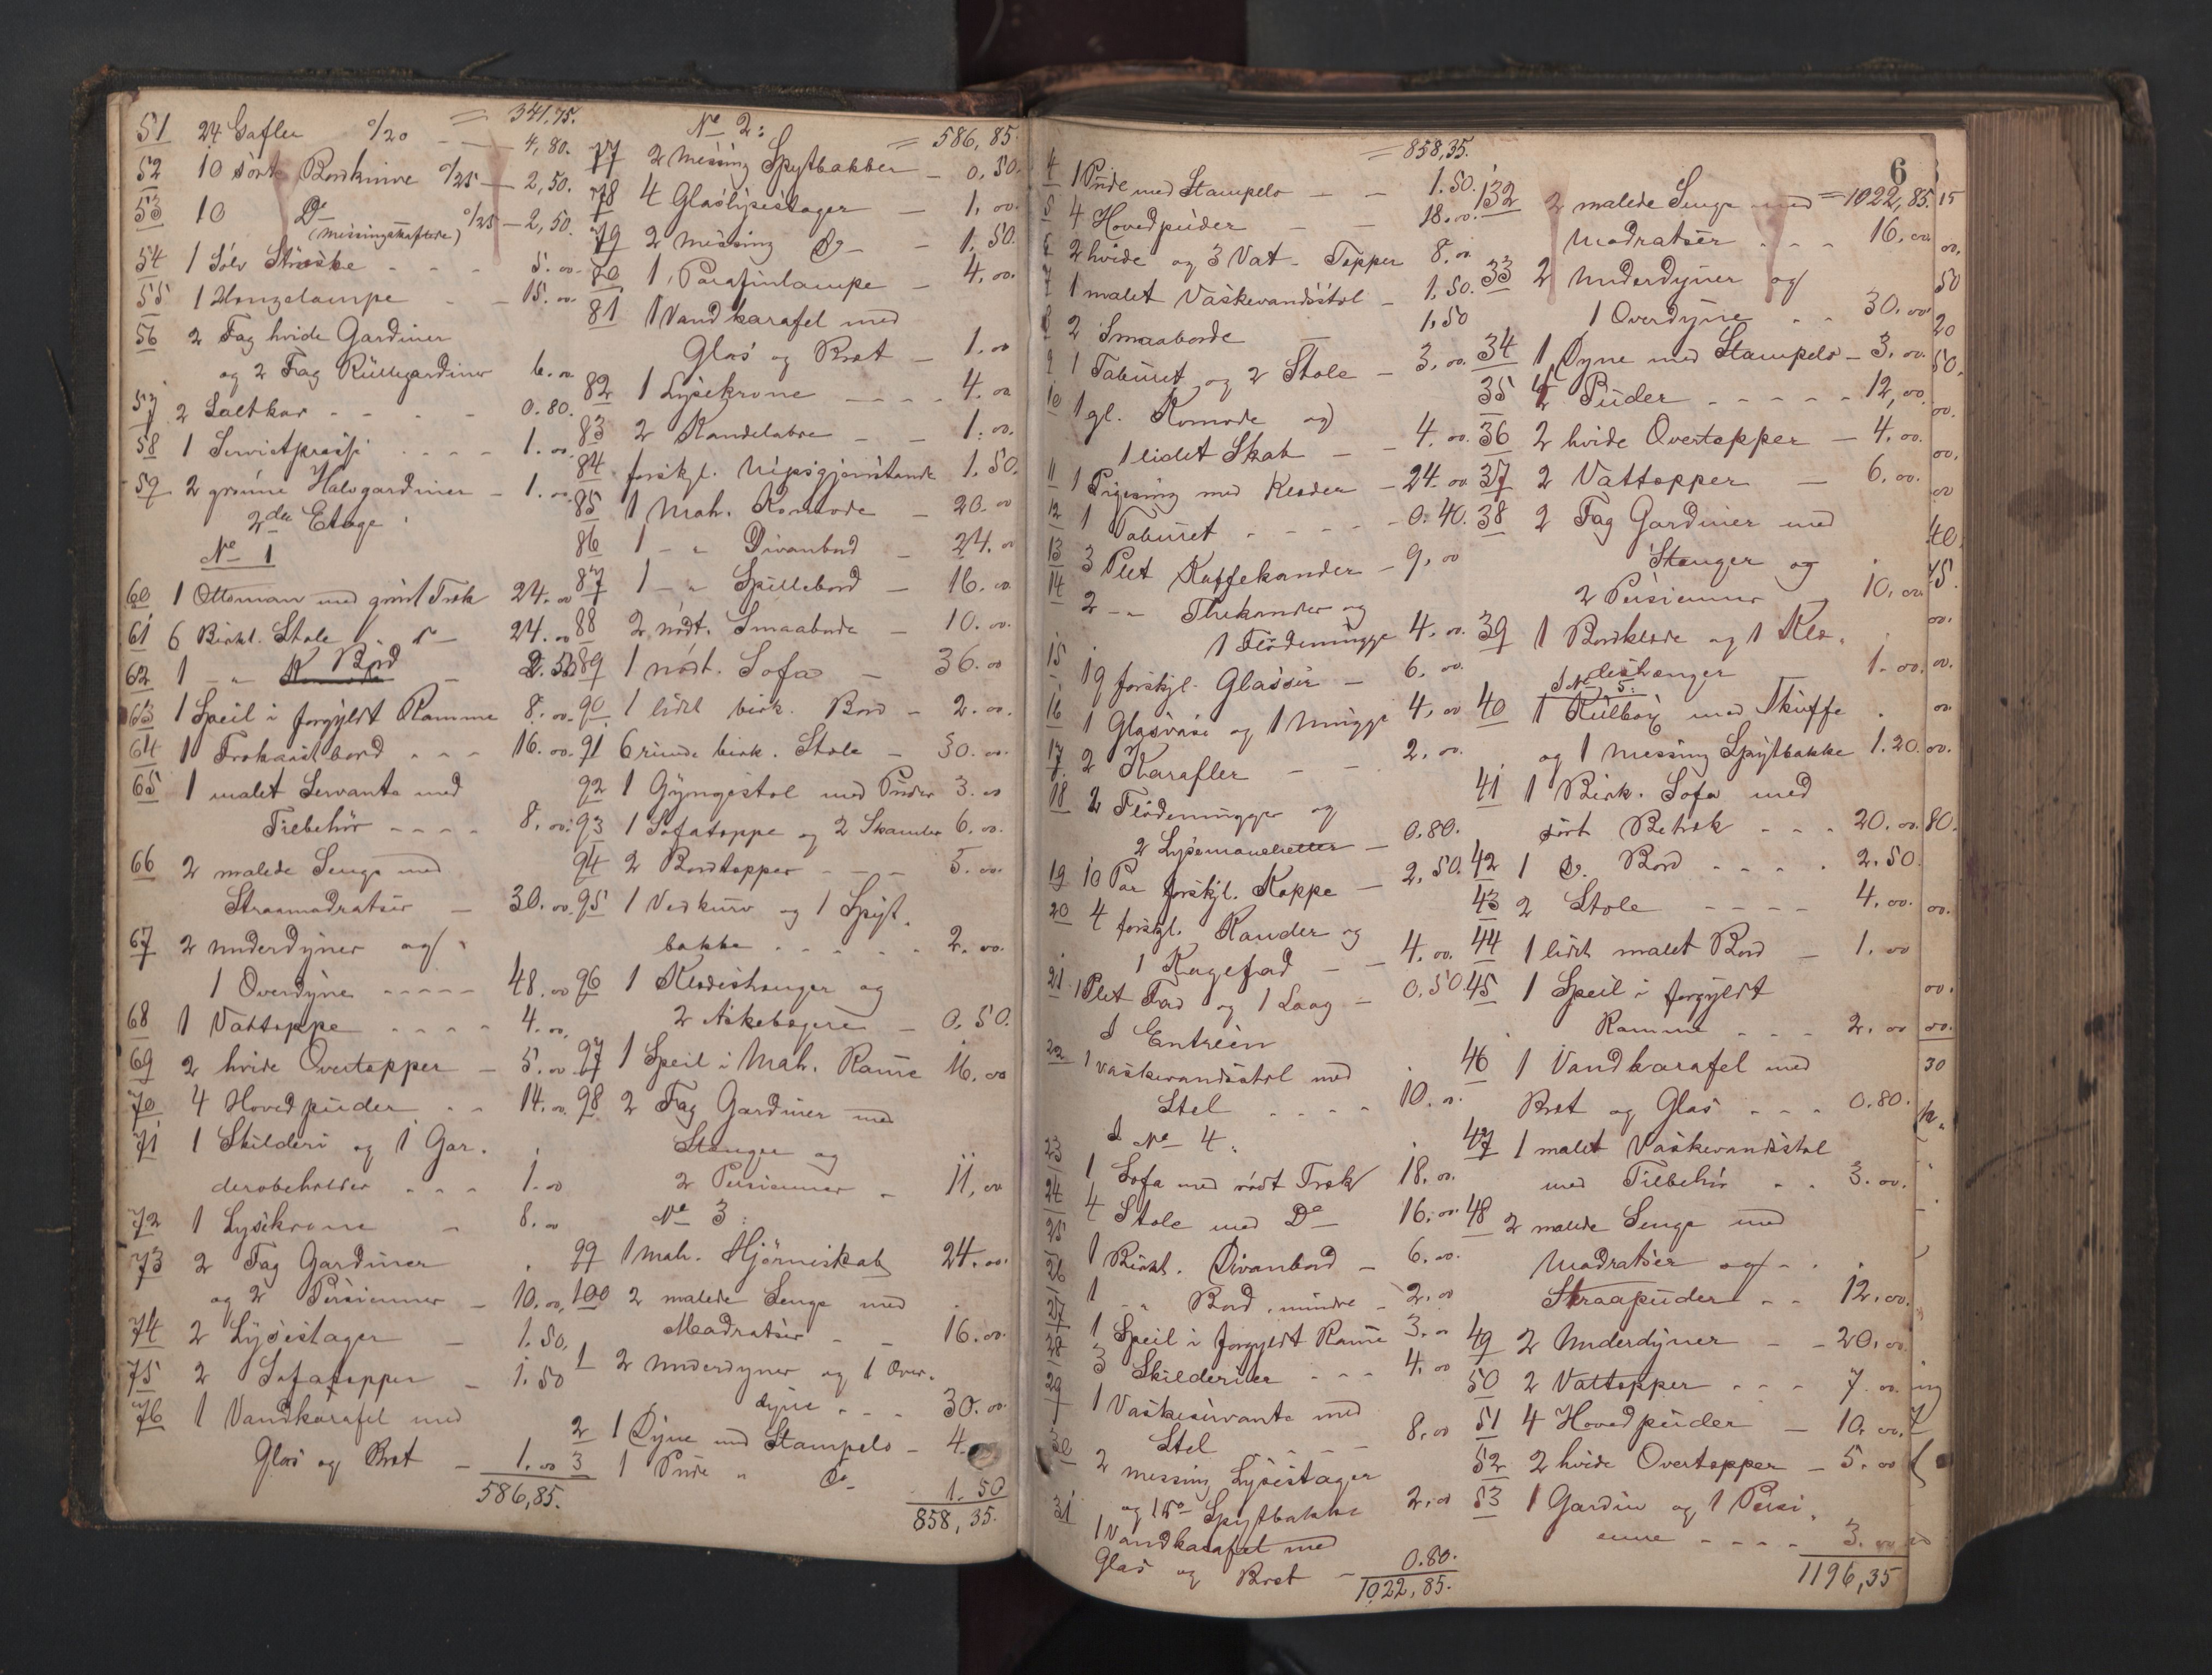 = 341,75.
51 24 Gafler o/20 - 4,80.
52 10 sorte Bordknive o/25 - 2,50.
53 10 Do o/25 - 2,50.
(messingskaftede)
54 1 Sølv Strøske - - - 5.00
55 1 Hengelampe - - 15.00
56 2 Fag hvide Gardiner
og 2 Fag Rullegardiner 6.00
57 2 Saltkar - - - - 0.80.
58 1 Servietpresse - - - - 1.00
59 2 grønne Halvgardiner - 1.00.
2den Etage
No 1
60 1 Ottoman med grønt Træk 24.00
61 6 Birkt. Stole - " - 24.00
62 1 - " Bord - 2.50
63 1 Speil i forgyldt Ramme 8.00.
64 1 Frokostbord - - - 16.00.
65 1 malet Servante med
Tilbehør - - - - 8.00.
66 2 malede Senge med
Straamadratser - 30.00.
67 2 Underdyner og
1 Overdyne - - - - - 48.00
68 1 Vattæppe - - - - 4.00,
69 2 hvide Overtæpper - 5.00
70 4 Hovedpuder - - 14.00.
71 1 Skilderi og 1 Gar-
derobeholder - - - 1.00
72 1 Lysekrone - 8.00
73 2 Fag Gardiner
og 2 Persienner - 10.00,
74 2 Lysestager - 1.50,
75 2 Sofatæpper - 1.50
76 1 Vandkarafel med
Glas og Bret - 1.00
586,85.
No 2:
= 586,85.
77 2 Messing Spytbakker - 0.50.
78 4 Glaslysestager - 1.00.
79 2 Messing Do - - 1.50.
70 1 Parafinlampe - 4.00.
81 1 Vandkarafel med
Glas og Bret - 1.00
82 1 Lysekrone - - - - 4.00
83 2 Kandelabre - - 1.00.
84 forskjl. Nipsgjenstande 1.50.
85 1 Mah. Komode - 20.00
86 1 - " Divanbord - 24.00
87 1 - " Spillebord - 16.00
88 2 nødt. Smaaborde - 10.00.
89 1 nødt. Sofa - 36.00
90 1 lidet birk. Bord - 2.00.
91 6 runde birk. Stole - 30.00.
92 1 Gyngestol med Puder 3.00
93 1 Sofatæppe og 2 Skamler 6.00.
94 2 Bordtæpper - - - 5.00.
95 1 Vedkurv og 1 Spyt-
bakke - - - - - 2.00.
96 1 Klædeshænger og
2 Askebægere - 0.50.
97 1 Speil i Mah. Rame 16.00
98 2 Fag Gardiner med
Stænger og
2 Persienner - 11.00
No 3:
99 1 Mah. Hjørneskab 24.00.
100 2 malede Senge med
Madratser - - 16.00.
1 2 Underdyner og 1 Over-
dyne - - - 30.00
2 1 Dyne med Stampelo - 4.
3 1 Pude " Do - 1.50
858,35.
= 858,35.
4 1 Pude med Stampelo - - 1.50.
5 4 Hovedpuder - - 18.00.
6 2 hvide og 3 Vat-Tepper 8.00
7 1 malet Vaskevandsstol - 1.50.
8 2 Smaaborde - 1.50
9 1 Taburet og 2 Stole - 3.00.
10 1 gl. Komode og
1 lidet Skab - - 4.00.
11 1 Pigeseng med Klæder - 24.00
12 1 Taburet - - - - - 0.40.
13 3 Plet Kaffekander - 9,00
14 2 - " Thekander og
1 Flødemugge 4.00.
15 19 forskjl. Glasser - 6.00.
16 1 Glasvase og 1 Mugge 4.00
17 2 Karafler - - 2.00.
18 2 Flødemugger og
2 Lysemanchetter - 0.80.
19 10 Par forskjl. Koppe - 2,50.
20 4 forskjl. Kander og
1 Kagefad - - 4.00.
21 1 Plet Fad og 1 Laag - 0.50
I Entreen
22 1 Vaskevandsstol med
Stel - - - - 10.00.
I No 4:
23 1 Sofa med rødt Træk 18.00.
24 4 Stole med Do 16.00.
25 1 Birkt. Divanbord - 6.00.
26 1 - " Bord, mindre - 2.00
27 1 Speil i forgyldt Rame 3.00
28 3 Skilderier - - - 4.00
29 1 Vaskeservante med
Stel - - - - 8.00
30 2 messing Lysestager
og 1 Do Spytbakke 2.00
31 1 Vandkarafel med
Glas og Bret - 0.80.
1022,85.
6
= 1022,85.
132 2 malede Senge med
Madratser - - - 16.00
33 2 Underdyner og
1 Overdyne - - 30.00
34 1 Dyne med Stampelo - 3.00
35 4 Puder - - - - - 12,00.
36 2 hvide Overtæpper - 4.00.
37 2 Vattæpper - 6.00.
38 2 Fag Gardiner med
Stænger og
2 Persienner - 10.00
39 1 Bordklæde og 1 Klæ-
deshænger 1.00.
I No 5:
40 1 Kulbox med Skuffe
og 1 Messing Spytbakke 1.20.
41 1 Birk. Sofa med
sort Betræk - - - 20.00.
42 1 Do. Bord - - - - 2.50.
43 2 Stole - - - - 4.00.
44 1 lidet malet Bord - 1.00
45 1 Speil i forgyldt
Ramme - - - 2.00
46 1 Vandkarafel med
Bret og Glas - - - 0.80.
47 1 malet Vaskevandsstol
med Tilbehør - - 3.00.
48 2 malede Senge med
Madratser og - -
Straapuder - - 12.00.
49 2 Underdyner - - 20.00
50 2 Vattæpper - - - 7.00.
51 4 Hovedpuder - 10.00.
52 2 hvide Overtæpper - 5.00
53 1 Gardin og 1 Persi-
enne - - - - 3.00
1196,35